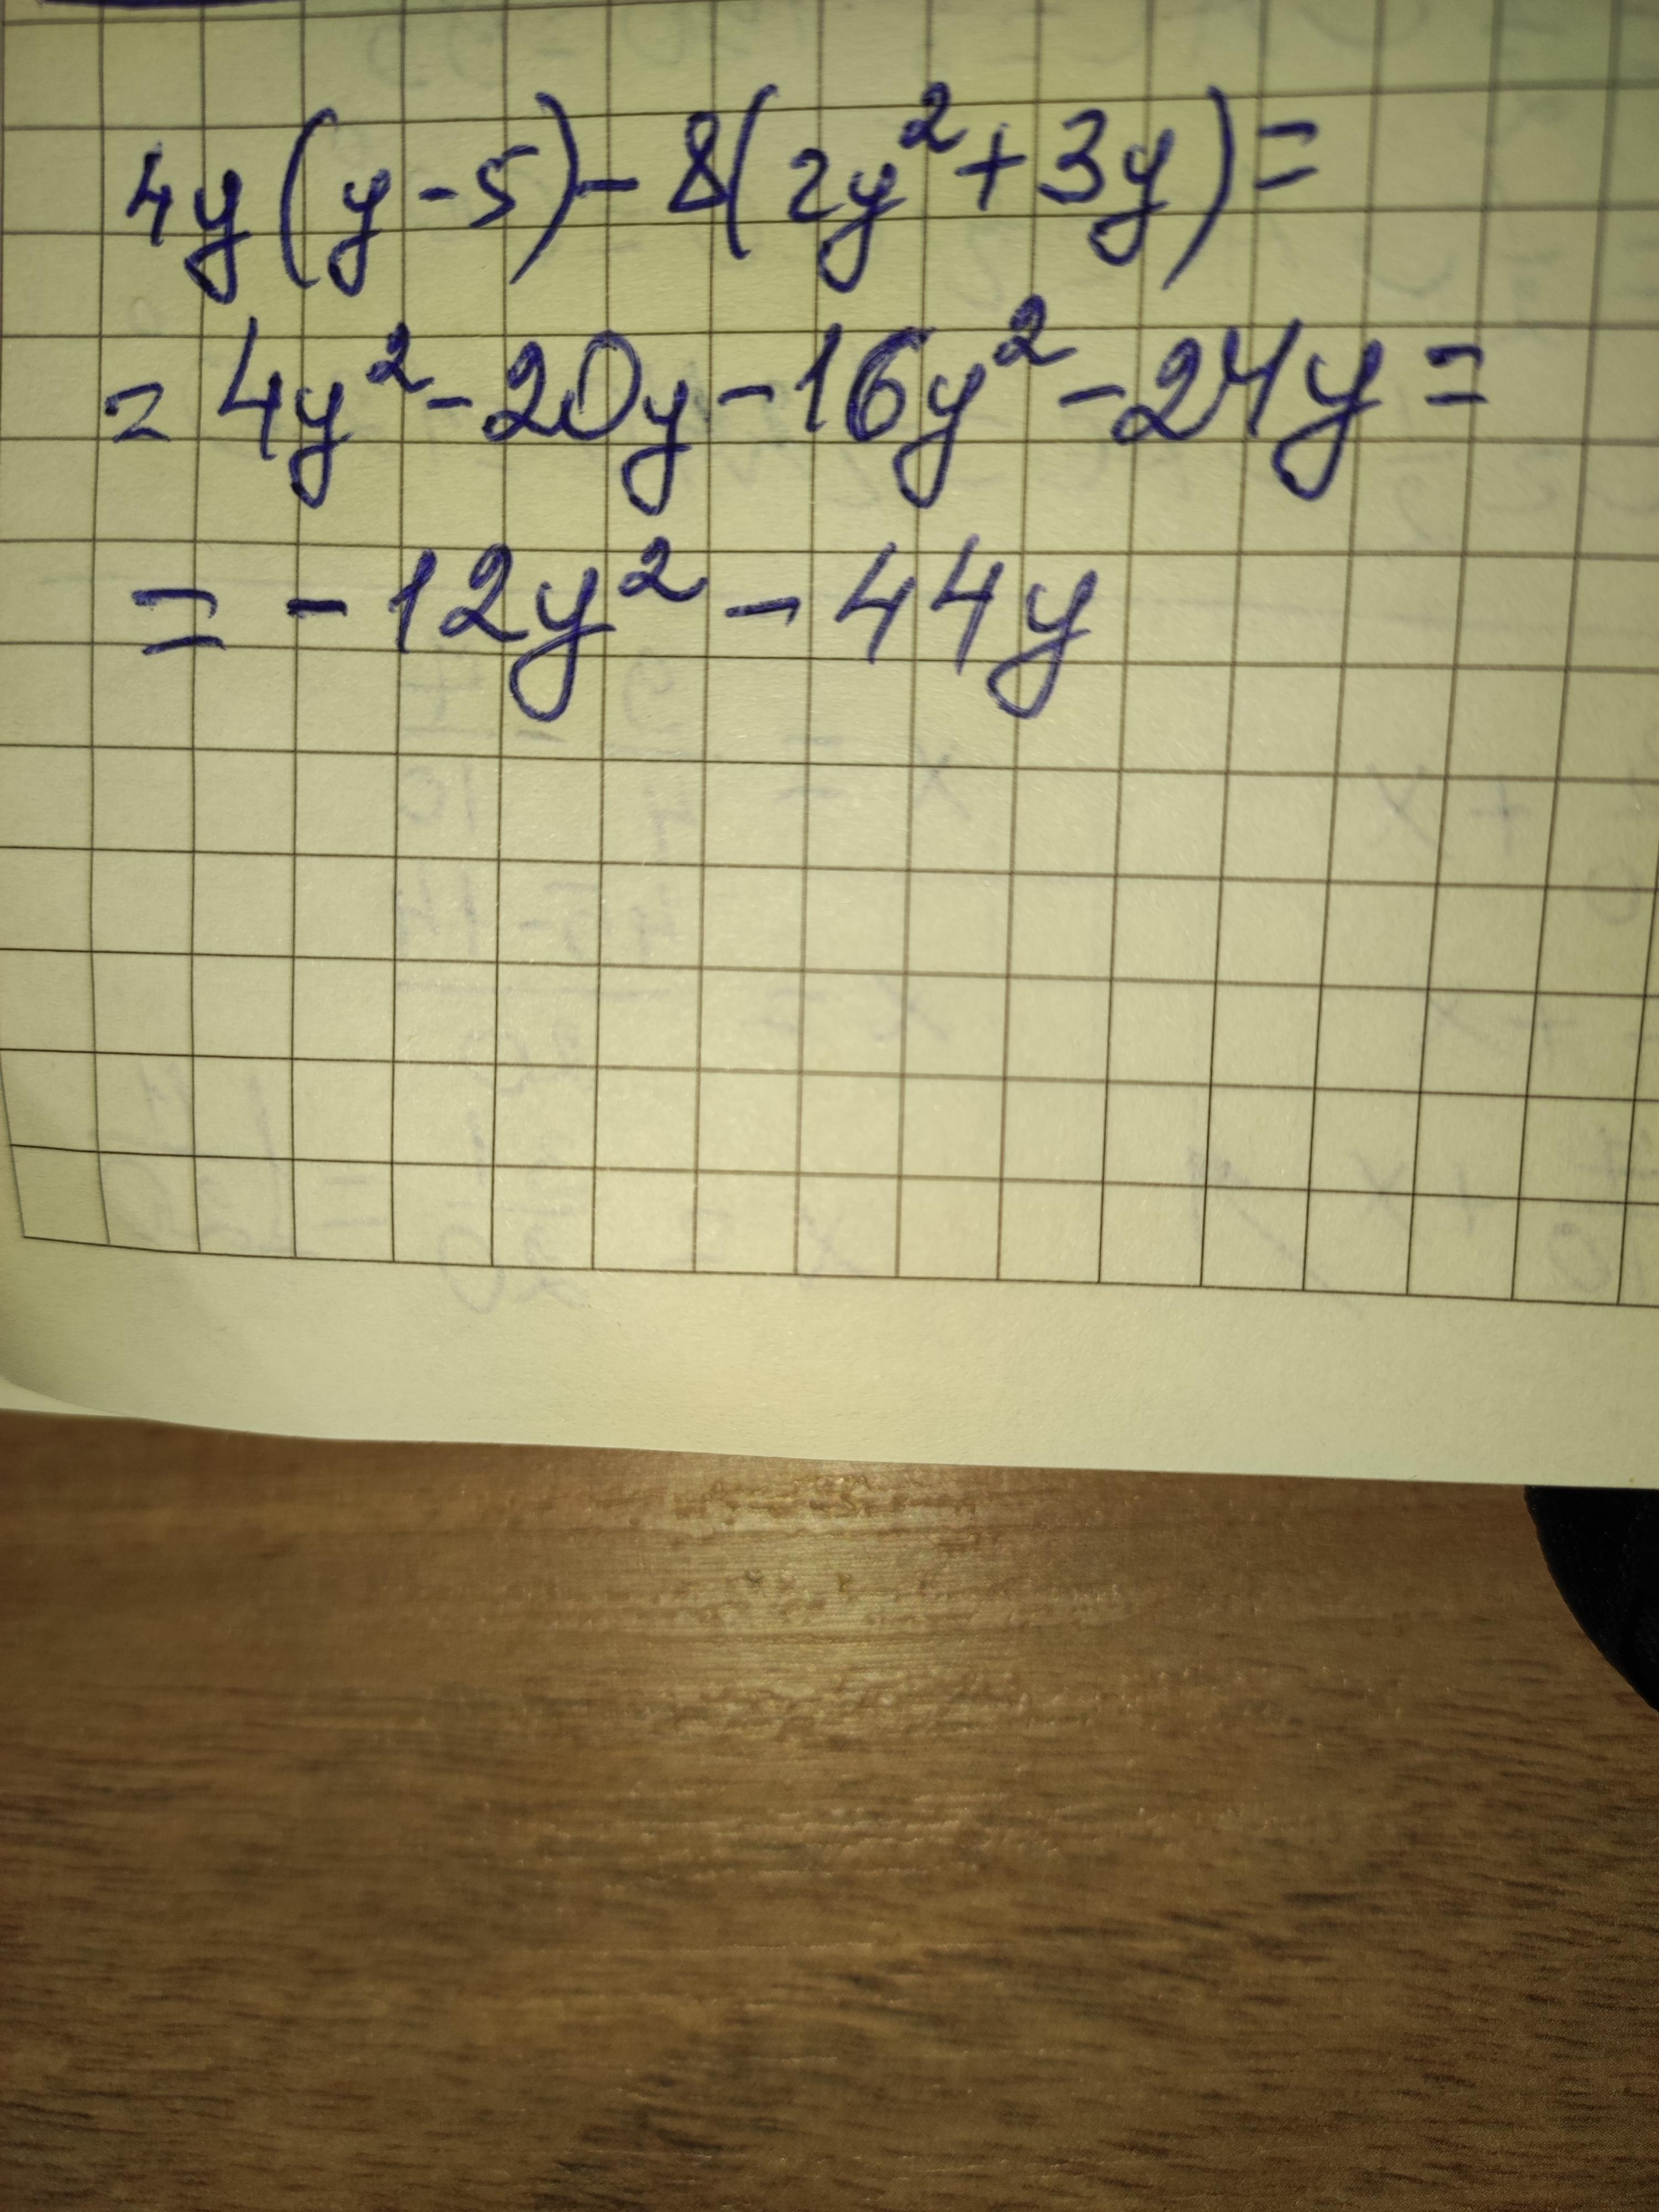 4y(y-5)-8(2y²+3y)=
=4y²-20y-16y²-24y=
=-12y²-44y